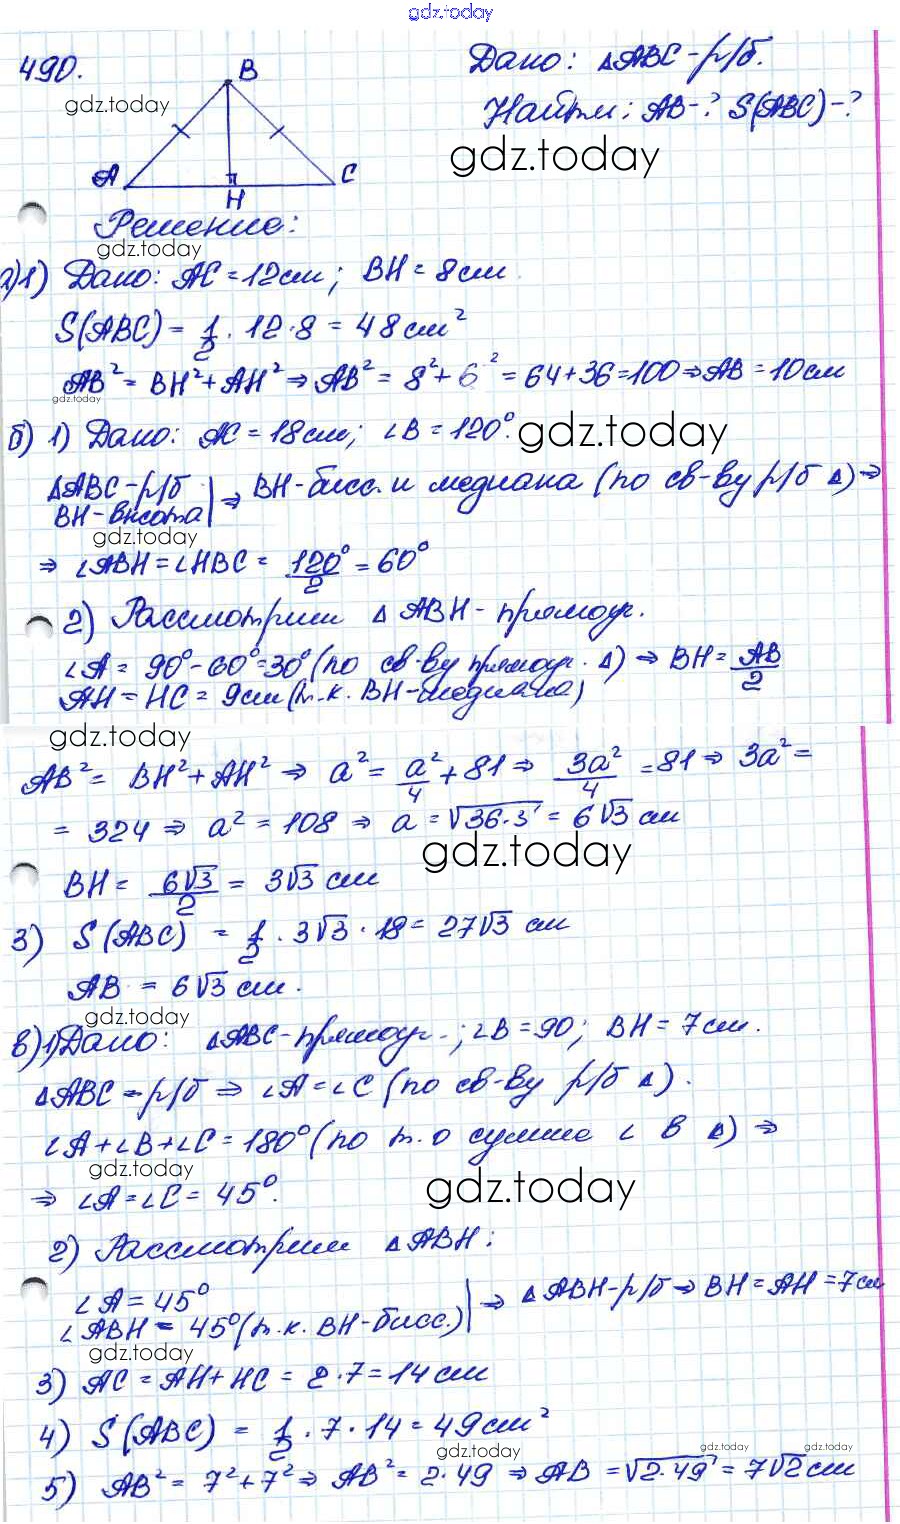 gdz.today
490.
B
Дано: △ABC-р/б.
gdz.today
Найти: AB-? S(ABC)-?
gdz.today
A
C
H
Решение:
gdz.today
1) Дано: AC = 12см; BH = 8см.
S(ABC) = 1/2 · 12·8 = 48 см²
AB² = BH² + AH² ⇒ AB² = 8² + 6² = 64+36=100 ⇒ AB = 10см
gdz.today
б) 1) Дано: AC = 18см; ∠B = 120°.
gdz.today
△ABC-р/б
BH-высота
⇒ BH-бисс. и медиана (по св-ву р/б △) ⇒
gdz.today
⇒ ∠ABH = ∠HBC = 120°/2 = 60°
2) Рассмотрим △ABH- прямоуг.
∠A = 90°-60°=30° (по св-ву прямоуг. △) ⇒ BH = AB/2
AH = HC = 9см (т.к. BH-медиана)
gdz.today
AB² = BH² + AH² ⇒ a² = a²/4 + 81 ⇒ 3a²/4 = 81 ⇒ 3a² =
= 324 ⇒ a² = 108 ⇒ a = √36·3 = 6√3 см
gdz.today
BH = 6√3/2 = 3√3 см
3) S(ABC) = 1/2 · 3√3 · 18 = 27√3 см
AB = 6√3 см.
gdz.today
в) 1) Дано: △ABC-прямоуг.; ∠B = 90; BH = 7см.
△ABC - р/б ⇒ ∠A = ∠C (по св-ву р/б △).
∠A+∠B+∠C = 180° (по т. о сумме ∠ в △) ⇒
gdz.today
⇒ ∠A = ∠C = 45°.
gdz.today
2) Рассмотрим △ABH:
∠A = 45°
∠ABH = 45° (т.к. BH-бисс.)
⇒ △ABH-р/б ⇒ BH = AH = 7см
gdz.today
3) AC = AH + HC = 2·7 = 14 см
4) S(ABC) = 1/2 · 7 · 14 = 49 см²
gdz.today
gdz.today
gdz.today
5) AB² = 7² + 7² ⇒ AB² = 2·49 ⇒ AB = √2·49 = 7√2 см